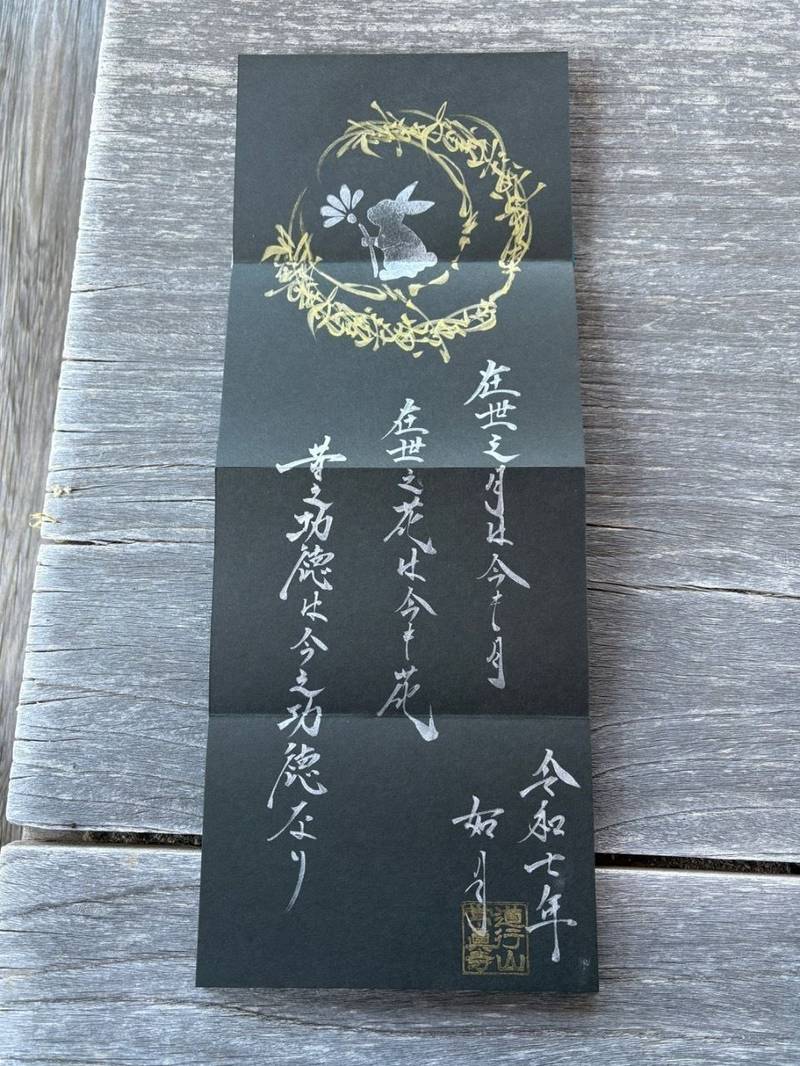 在世之月は今も月
在世之花は今も花
昔之功徳は今之功徳なり
令和七年
如月
道行山
眞寺